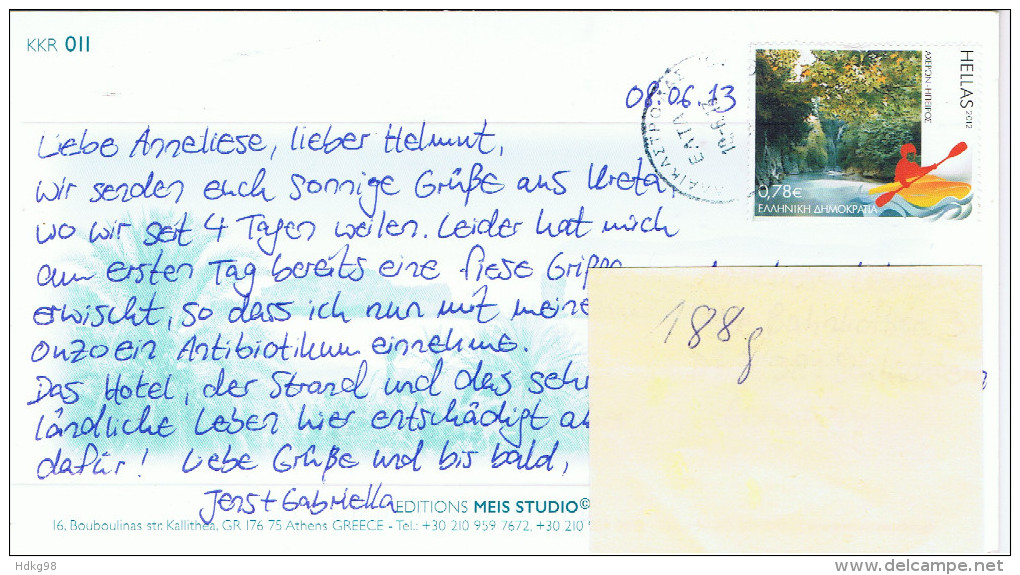 KKR 011
HELLAS 2012
ΑΧΕΡΩΝ-ΗΠΕΙΡΟΣ
0,78€
ΕΛΛΗΝΙΚΗ ΔΗΜΟΚΡΑΤΙΑ
ΕΛΤΑ
08.06.13
Liebe Anneliese, lieber Helmut,
wir senden euch sonnige Grüße aus Kreta
wo wir seit 4 Tagen weilen. Leider hat mich
am ersten Tag bereits eine fiese Grippe
erwischt, so dass ich nun mit meine
Ouzo ein Antibiotikum einnehme.
Das Hotel, der Strand und das sehr
ländliche Leben hier entschädigt
dafür! Liebe Grüße und bis bald,
Jens + Gabriella
188g
EDITIONS MEIS STUDIO©
16, Bouboulinas str. Kallithea, GR 176 75 Athens GREECE - Tel.: +30 210 959 7672, +30 210 9
Hdkg98
www.delcampe.net